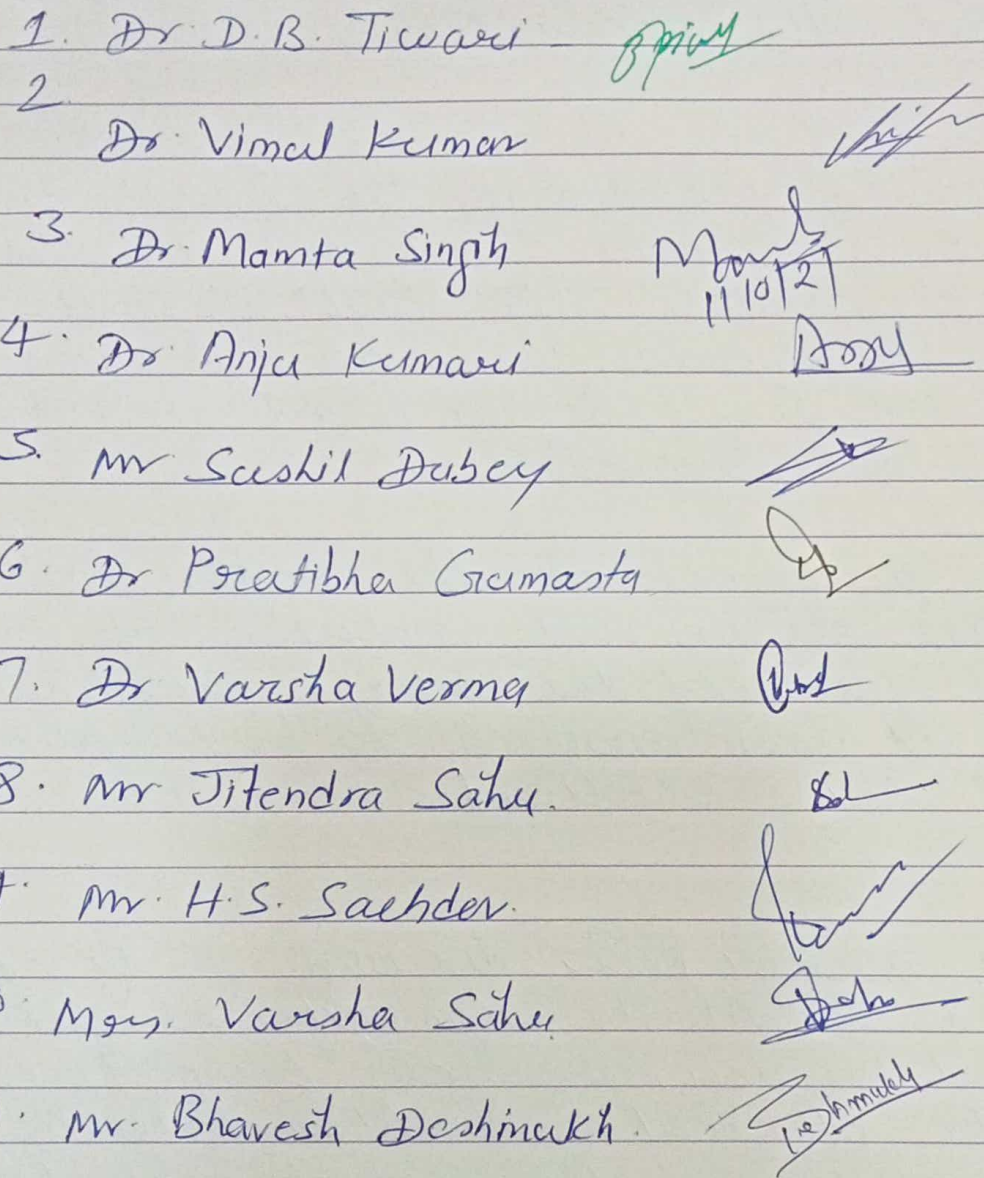 1. Dr D.B. Tiwari -
2
Dr. Vimal Kumar
3. Dr. Mamta Singh
11/10/21
4. Dr. Anju Kumari
5. Mr Sushil Dubey
6. Dr Pratibha Gumasta
7. Dr Varsha Verma
8. Mr Jitendra Sahu.
Mr. H.S. Sachdev.
Mrs. Varsha Sahu
Mr. Bhavesh Deshmukh. Deshmukh